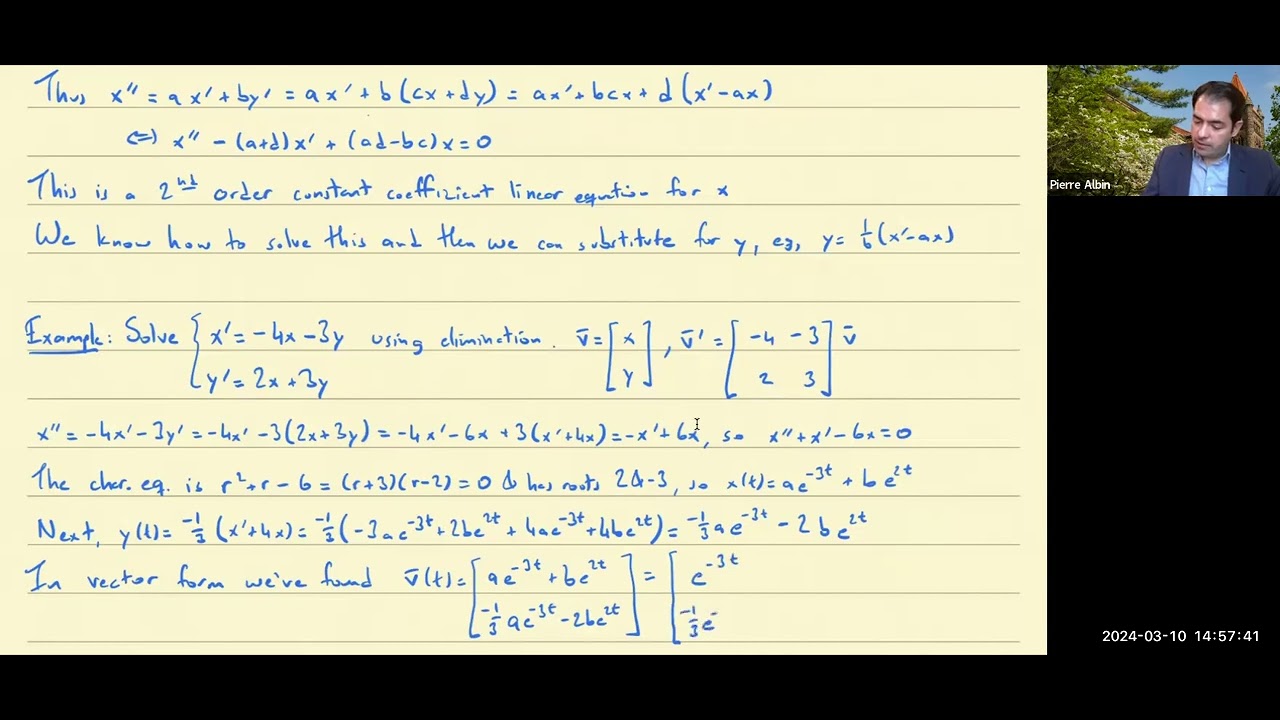 Thus x'' = ax' + by' = ax' + b(cx+dy) = ax' + bcx + d(x'-ax)
⇔ x'' - (a+d)x' + (ad-bc)x = 0
This is a 2nd order constant coefficient linear equation for x
We know how to solve this and then we can substitute for y, eg, y = 1/b (x'-ax)
Example: Solve { x' = -4x - 3y using elimination. v̄ = [x y], v̄' = [-4 -3 2 3] v̄
y' = 2x + 3y
x'' = -4x' - 3y' = -4x' - 3(2x+3y) = -4x' - 6x + 3(x'+4x) = -x' + 6x, so x'' + x' - 6x = 0
The char. eq. is r²+r-6 = (r+3)(r-2) = 0 & has roots 2 & -3, so x(t) = ae^{-3t} + be^{2t}
Next, y(t) = -1/3 (x'+4x) = -1/3 (-3ae^{-3t} + 2be^{2t} + 4ae^{-3t} + 4be^{2t}) = -1/3 ae^{-3t} - 2be^{2t}
In vector form we've found v̄(t) = [ae^{-3t} + be^{2t} = [e^{-3t}
-1/3 ae^{-3t} - 2be^{2t}] -1/3 e
Pierre Albin
2024-03-10 14:57:41